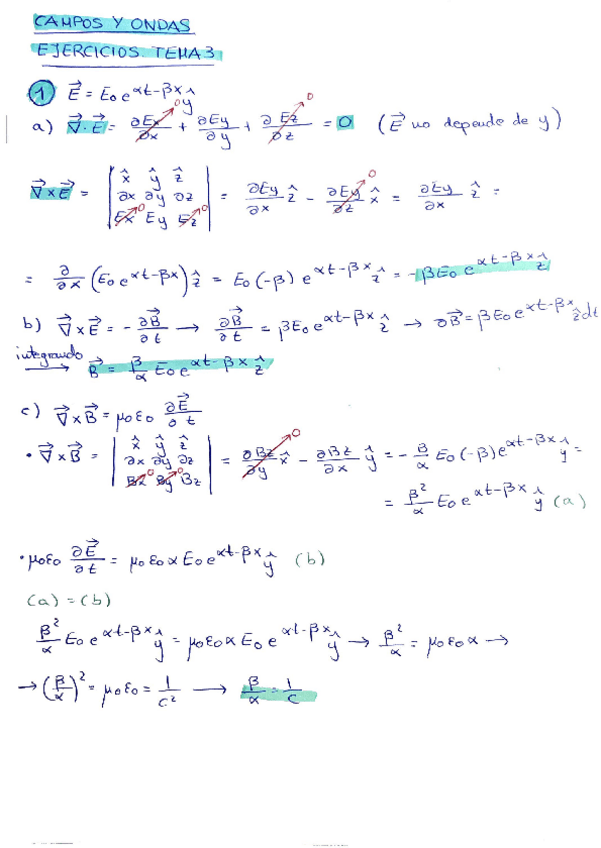 CAMPOS Y ONDAS
EJERCICIOS TEMA 3
1 E⃗ = E₀ e^(αt-βx) ŷ
a) ∇⃗·E⃗ = ∂Ex/∂x + ∂Ey/∂y + ∂Ez/∂z = 0 (E⃗ no depende de y)
∇⃗×E⃗ = | x̂ ŷ ẑ ; ∂x ∂y ∂z ; Ex Ey Ez | = ∂Ey/∂x ẑ - ∂Ey/∂z x̂ = ∂Ey/∂x ẑ =
= ∂/∂x (E₀ e^(αt-βx)) ẑ = E₀ (-β) e^(αt-βx) ẑ = -βE₀ e^(αt-βx) ẑ
b) ∇⃗×E⃗ = - ∂B⃗/∂t → ∂B⃗/∂t = βE₀ e^(αt-βx) ẑ → ∂B⃗ = βE₀ e^(αt-βx) ẑ dt
integrando → B⃗ = β/α E₀ e^(αt-βx) ẑ
c) ∇⃗×B⃗ = μ₀ε₀ ∂E⃗/∂t
• ∇⃗×B⃗ = | x̂ ŷ ẑ ; ∂x ∂y ∂z ; Bx By Bz | = ∂Bz/∂y x̂ - ∂Bz/∂x ŷ = - β/α E₀ (-β) e^(αt-βx) ŷ =
= β²/α E₀ e^(αt-βx) ŷ (a)
• μ₀ε₀ ∂E⃗/∂t = μ₀ε₀ α E₀ e^(αt-βx) ŷ (b)
(a) = (b)
β²/α E₀ e^(αt-βx) ŷ = μ₀ε₀ α E₀ e^(αt-βx) ŷ → β²/α = μ₀ε₀ α →
→ (β/α)² = μ₀ε₀ = 1/c² → β/α = 1/c